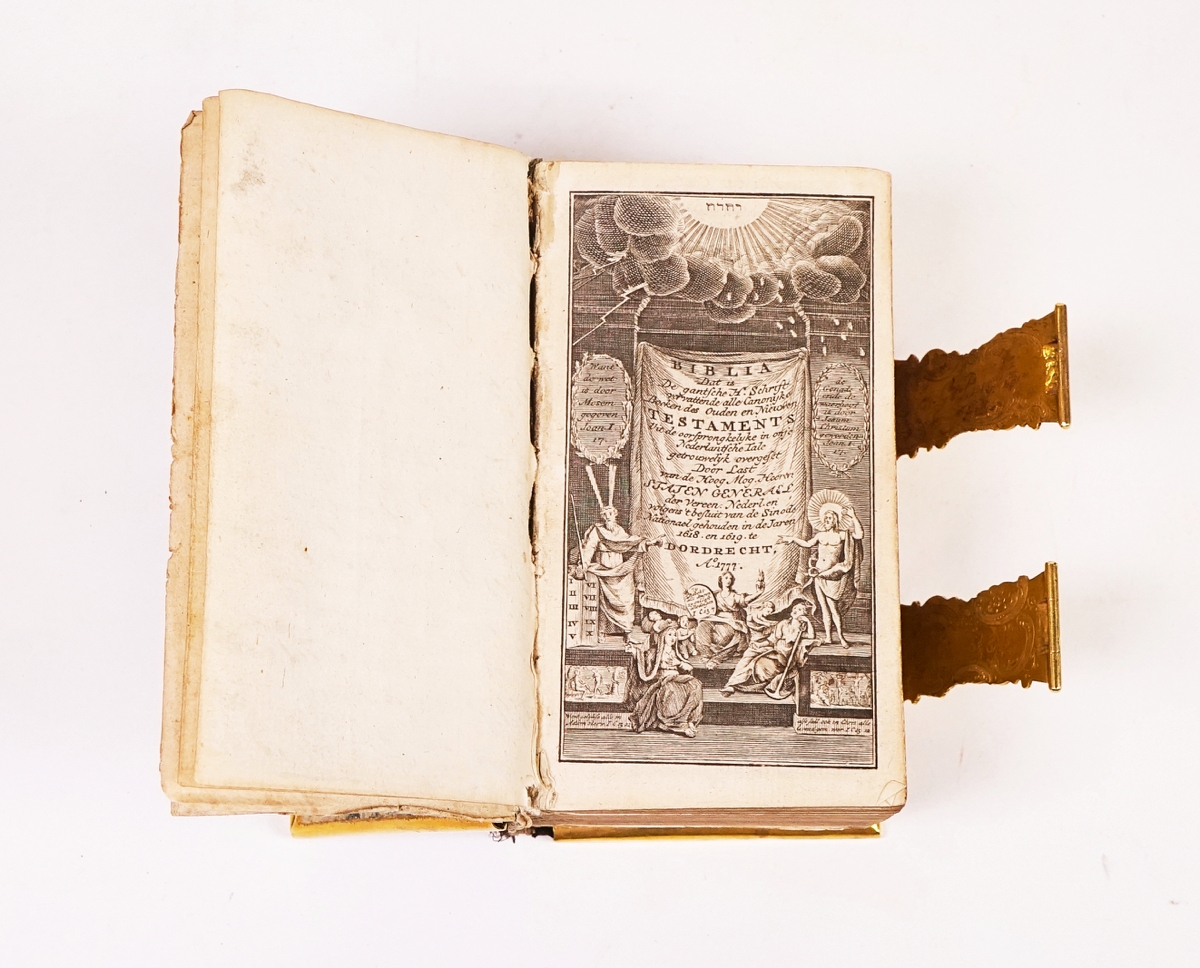 יהוה
BIBLIA
Dat is
De gantsche H. Schrift,
vervattende alle Canonijke
Boeken des Ouden en Nieuwen
TESTAMENTS
Uit de oorspronkelyke in onse
Nederlantsche Tale
getrouwelyk overgeset
Door Last
van de Hoog Mog. Heeren
STATEN GENERAEL
der Vereen. Nederl. en
volgens 't besluit van de Sinode
Nationael gehouden in de Jaren
1618. en 1619. te
DORDRECHT,
Aº 1777.
Want
de wet
is door
Mosem
gegeven
Joan I
17.
de
Genade
ende de
waerheyt
is door
Jesum
Christum
geworden
Joan I
17.
I
II
III
IV
V
VI
VII
VIII
IX
X